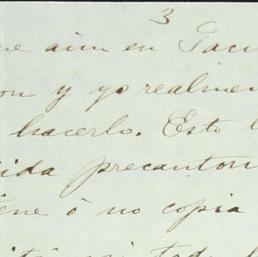 3
ue aún en
on y yo realmen
hacerlo. Esto l
ida precauton
iene ó no copia